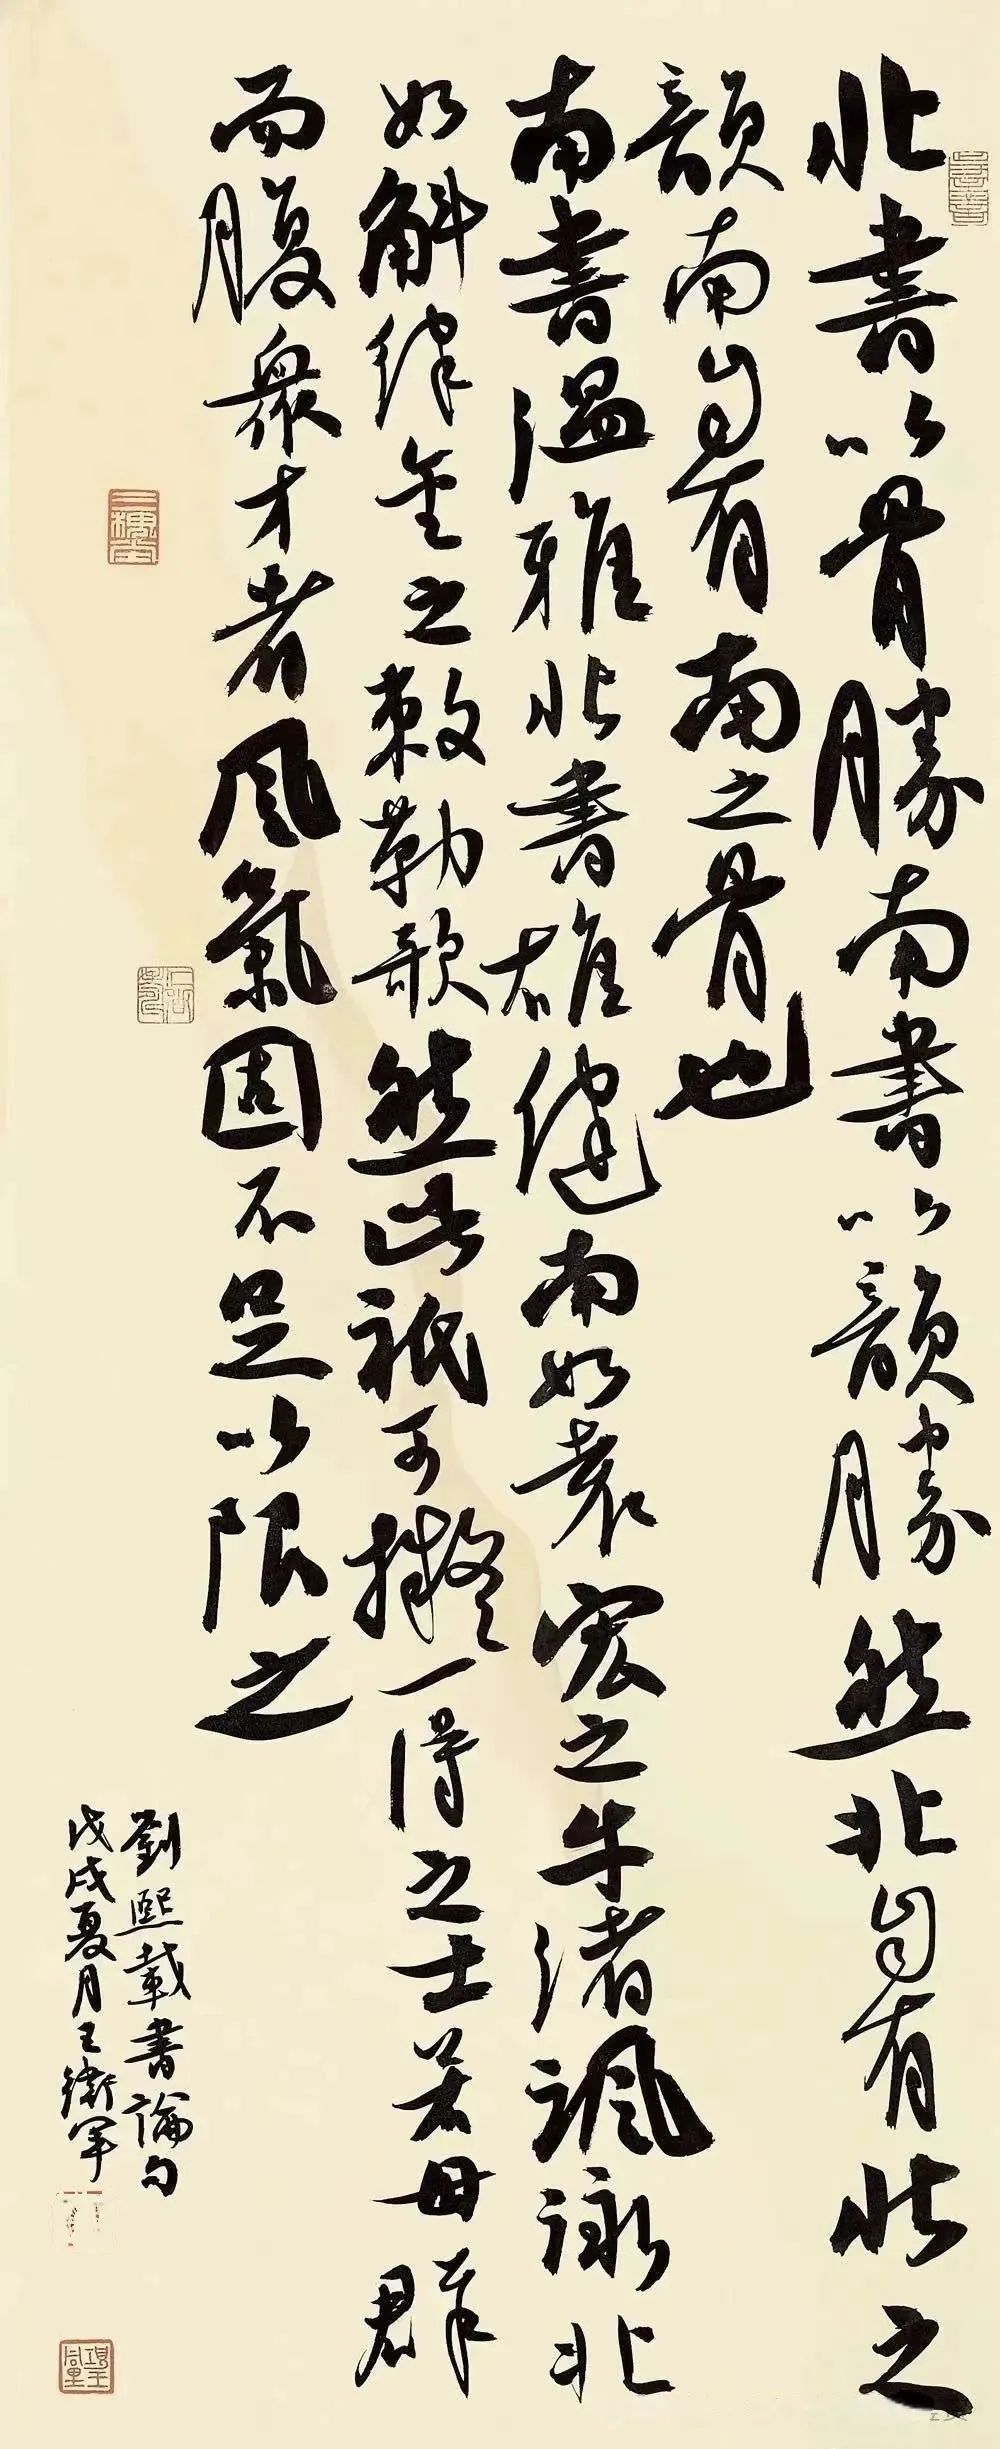 北書以骨勝南書以韻勝然北自有北之
韻南自有南之骨也
南書溫雅北書雄健南如袁宏之牛渚諷詠北
如斛律金之敕勒歌然此祇可擬一得之士若母群
而腹眾才者風氣固不足以限之
劉熙載書論句
戊戌夏月王衛軍